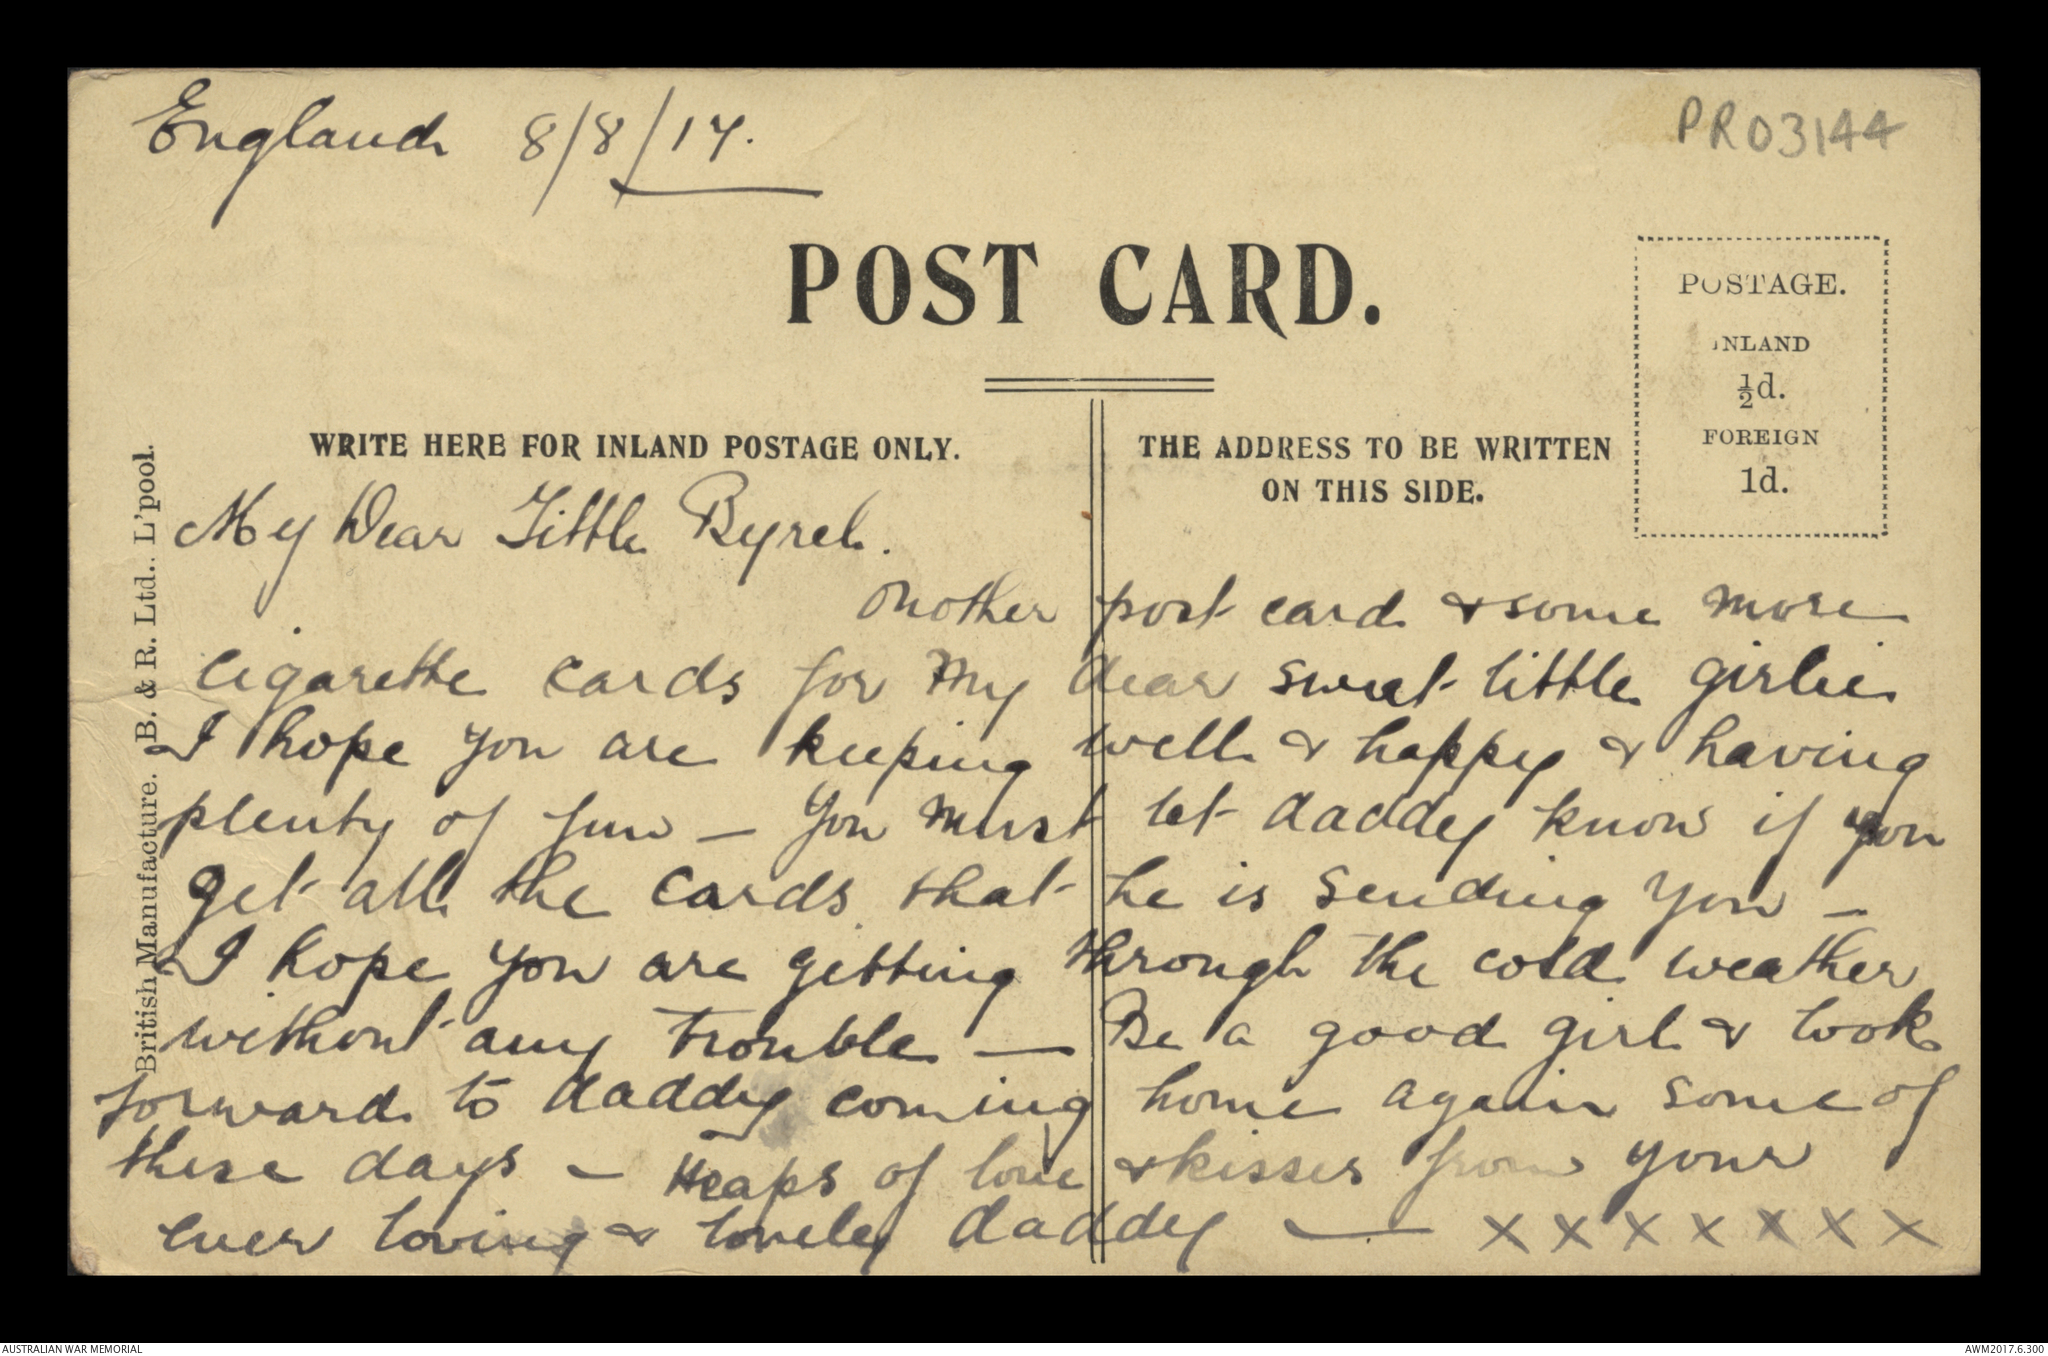 England 8/8/17.
PR03144
POST CARD.
POSTAGE.
INLAND
½d.
FOREIGN
1d.
WRITE HERE FOR INLAND POSTAGE ONLY.
THE ADDRESS TO BE WRITTEN
ON THIS SIDE.
British Manufacture. B. & R. Ltd., L'pool.
My Dear Little Byrel.
Another post card & some more
cigarette cards for my dear sweet little girlie
I hope you are keeping well & happy & having
plenty of fun – You must let daddy know if you
get all the cards that he is sending you –
I hope you are getting through the cold weather
without any trouble – Be a good girl & look
forward to daddy coming home again some of
these days – Heaps of love & kisses from your
ever loving & lonely daddy – x x x x x x x
AUSTRALIAN WAR MEMORIAL
AWM2017.6.300